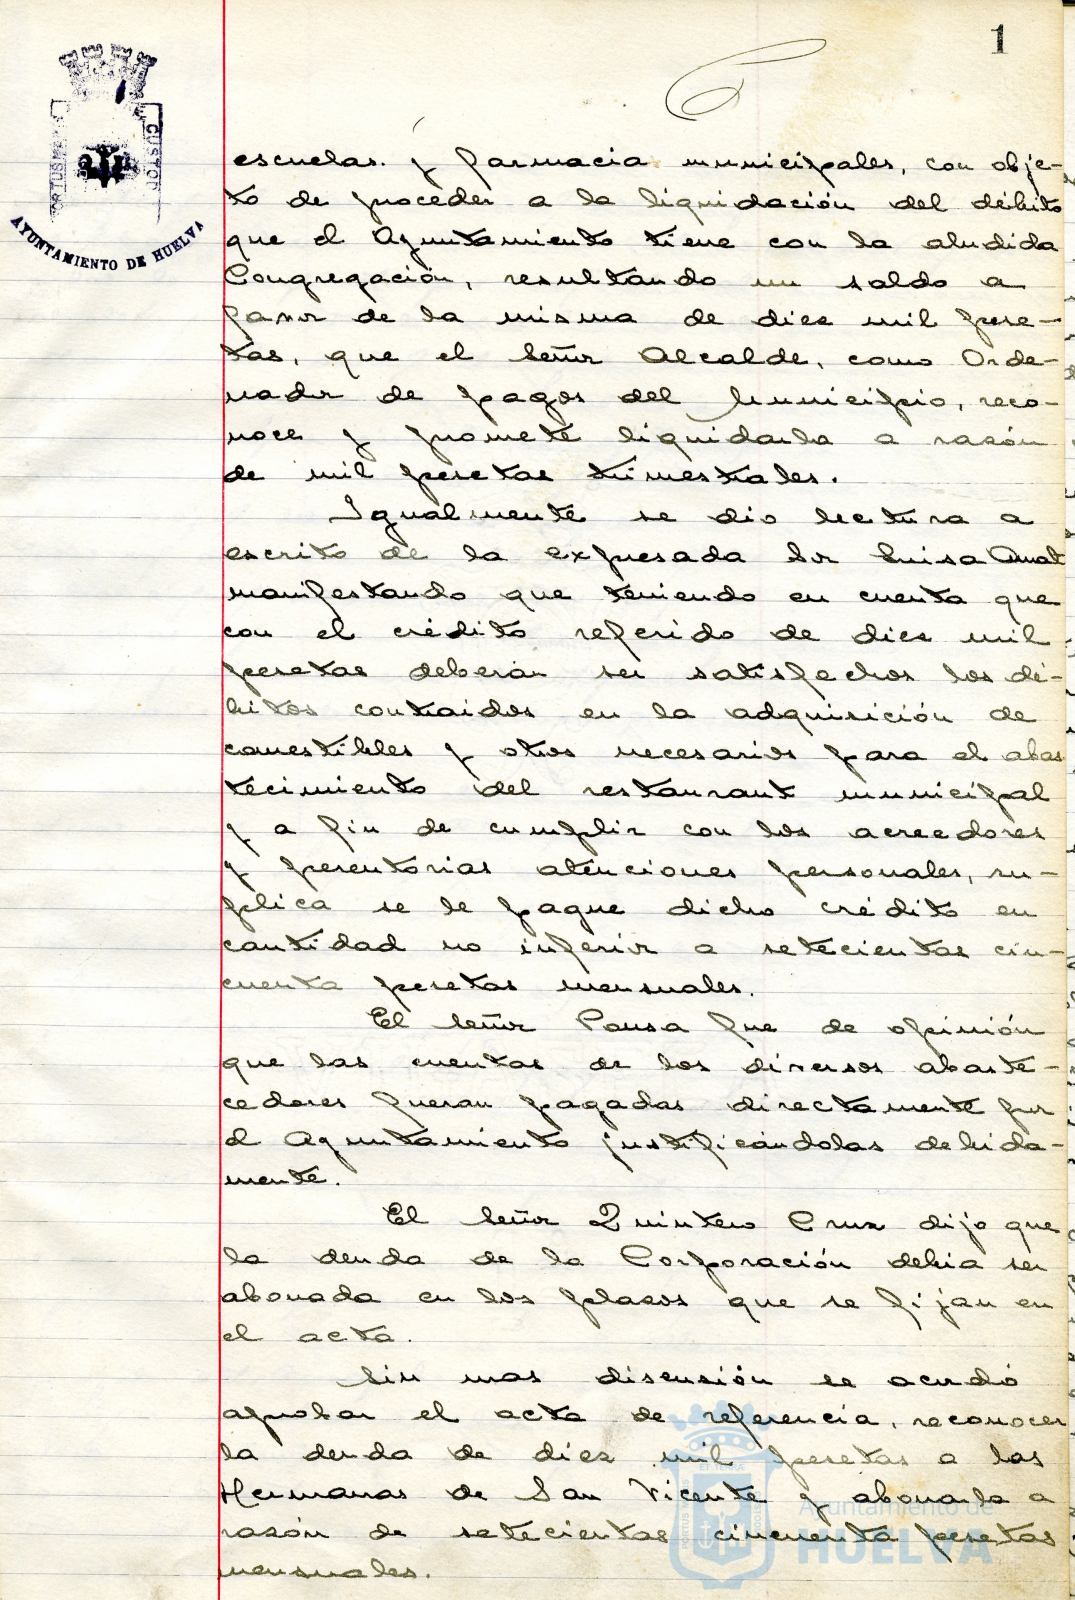 1
escuelas. y farmacia municipales, con obje-
to de proceder a la liquidación del débito
que el Ayuntamiento tiene con la aludida
Congregación, resultando un saldo a
favor de la misma de diez mil pese-
tas, que el Señor Alcalde, como Orde-
nador de pagos del Municipio, reco-
noce y promete liquidarla a razón
de mil pesetas trimestrales.
Igualmente se dio lectura a
escrito de la expresada Sor Luisa Amat
manifestando que teniendo en cuenta que
con el crédito referido de diez mil
pesetas deberán ser satisfechos los dé-
bitos contraidos en la adquisición de
comestibles y otros necesarios para el abas
tecimiento del restaurant municipal
y a fin de cumplir con los acreedores
y perentorias atenciones personales, su-
plica se le pague dicho crédito en
cantidad no inferior a setecientas cin-
cuenta pesetas mensuales.
El Señor Pousa fue de opinión
que las cuentas de los diversos abaste-
cedores fueran pagadas directamente por
el Ayuntamiento justificándolas debida-
mente.
El Señor Quintero Cruz dijo que
la deuda de la Corporación debia ser
abonada en los plazos que se fijan en
el acta.
Sin mas discusión se acordó
aprobar el acta de referencia, reconocer
la deuda de diez mil pesetas a las
Hermanas de San Vicente y abonarla a
razón de setecientas cincuenta pesetas
mensuales.
PORTUS MARIS
CUSTOD
AYUNTAMIENTO DE HUELVA
Ayuntamiento de
HUELVA